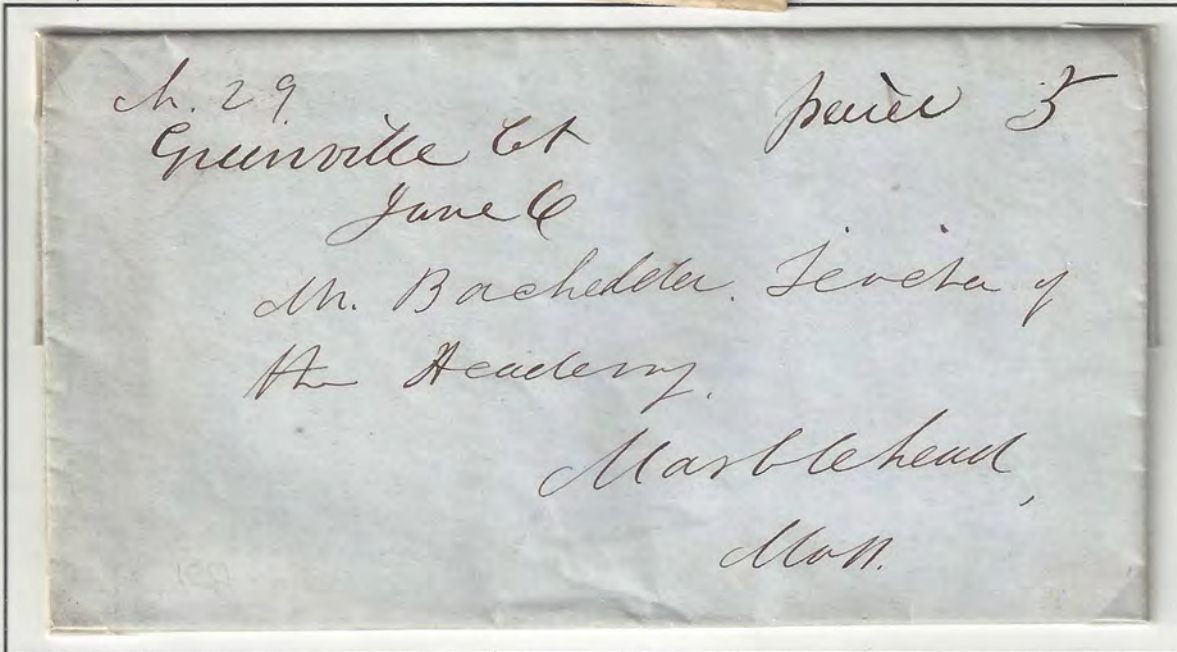 Ch. 29.
Greenville Ct
paid 5
June 6
Mr. Bachelder. Teacher of
the Academy.
Marblehead,
Mass.